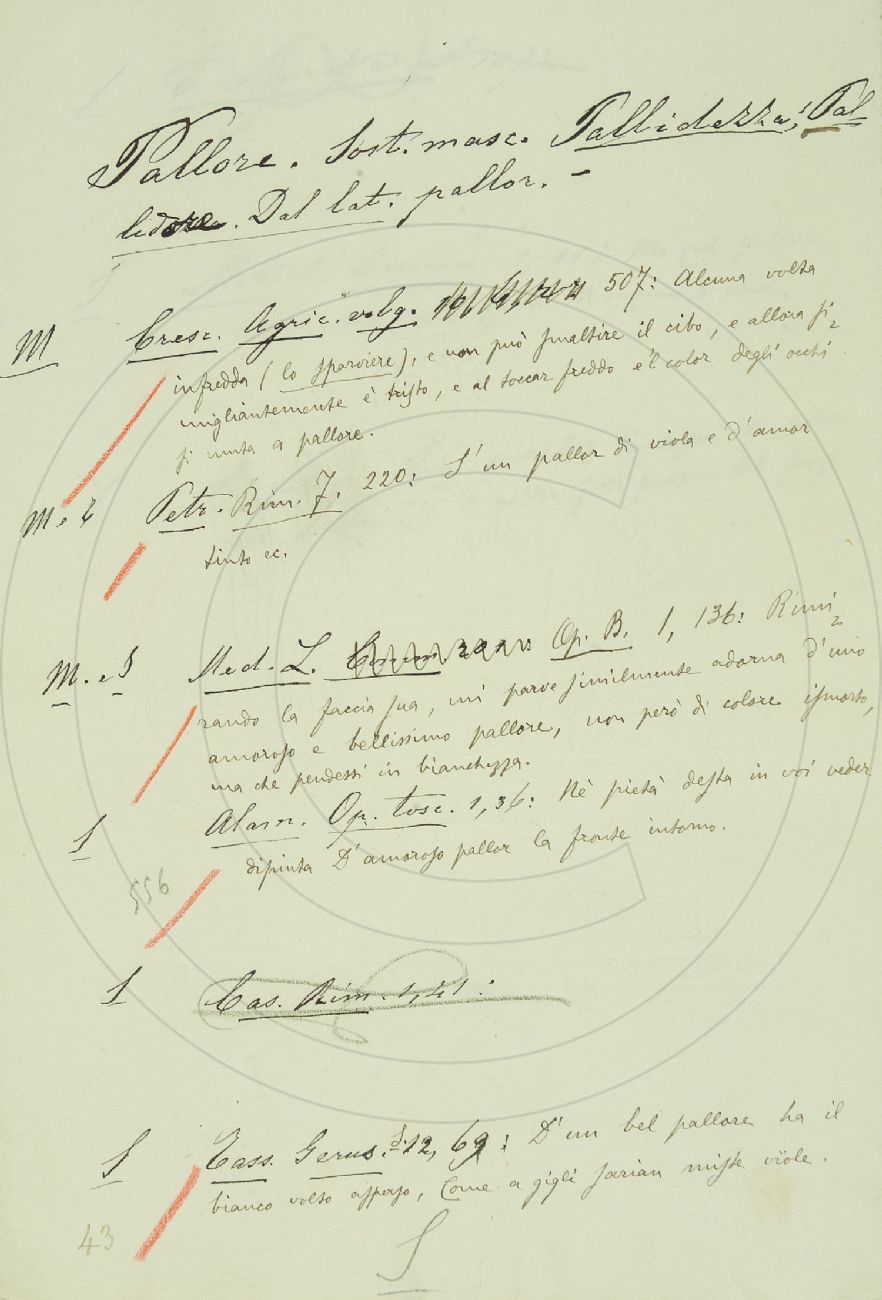 Pallore. Sost. masc. Pallidezza; Pal-
lidore. Dal lat. pallor. –
M Cresc. Agric. volg. 507: Alcuna volta
infredda (lo sparviere), e non può smaltire il cibo, e allora si-
migliantemente è tristo, e al toccar freddo e 'l color degli occhi
si muta a pallore.
M. e Petr. Rim. 7. 220: S' un pallor di viola e d'amor
tinto ec.
M. e S Med. L. Op. B. 1, 136: Rimi-
rando la faccia sua, mi parve similmente adorna d'uno
amoroso e bellissimo pallore, non però di colore ismorto,
ma che pendessi in bianchezza.
S Alam. Op. tosc. 1, 36: Nè pietà desta in voi veder
dipinta D'amoroso pallor la fronte intorno.
556
S Cas. Rim. 1, 41:
S Tass. Gerus. S. 12, 69: D'un bel pallore ha il
bianco volto asperso, Come a gigli sarian miste viole.
43
S